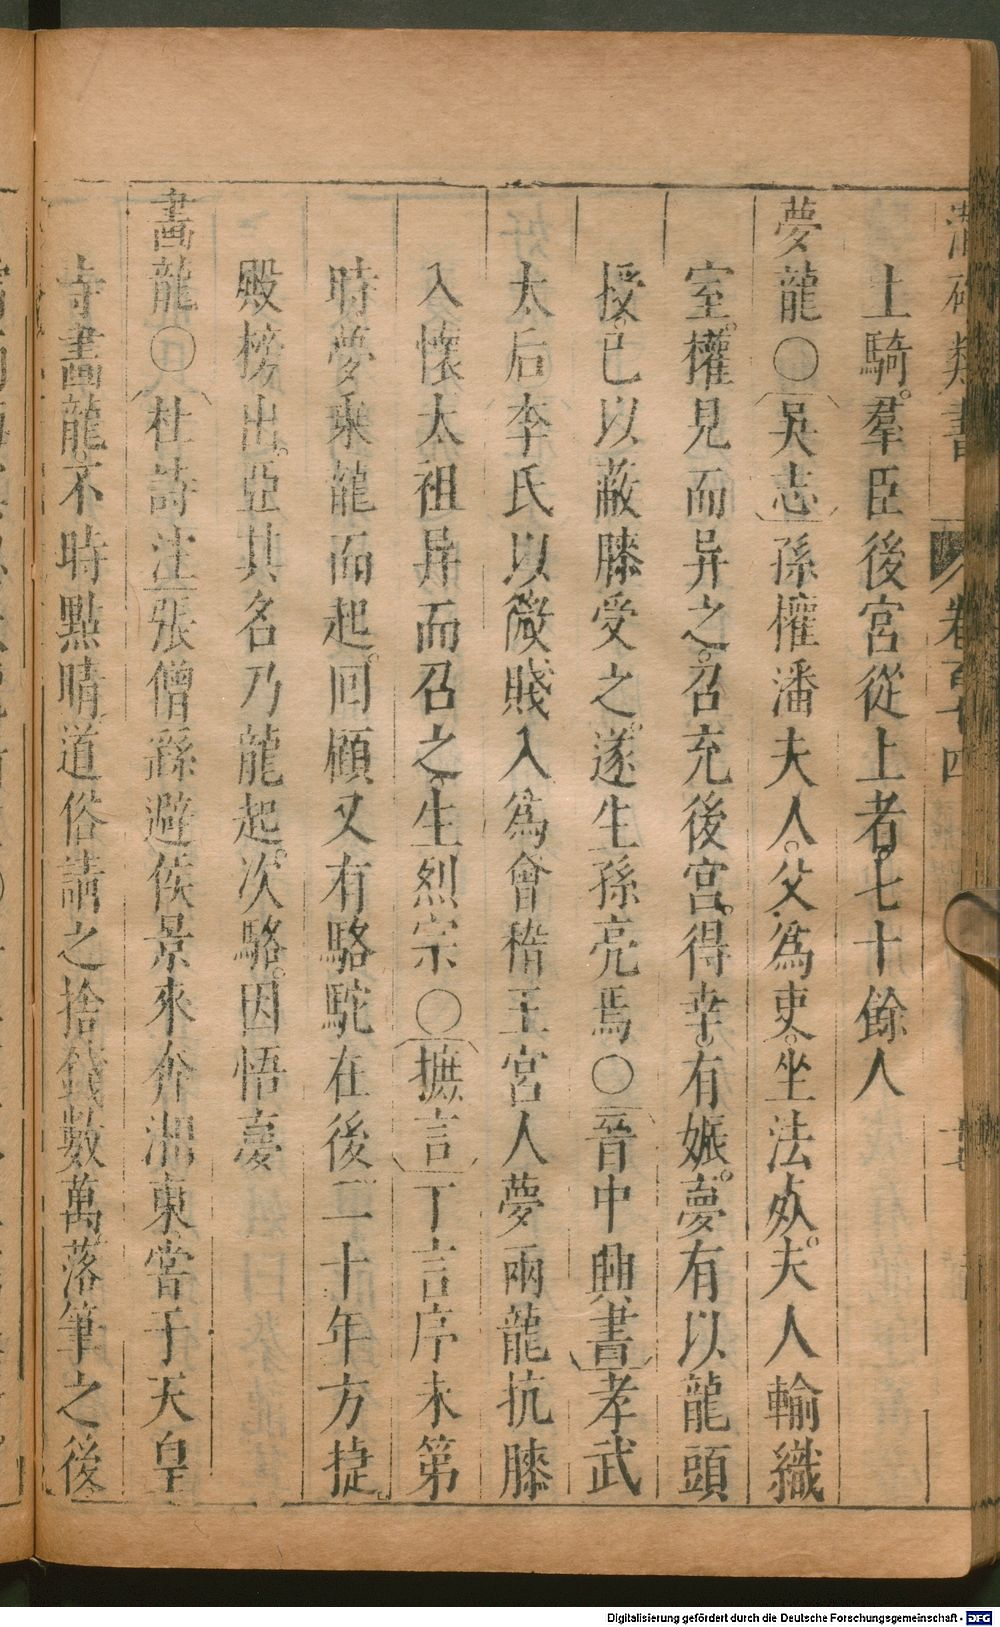 潛確類書 卷百十四
上騎。羣臣後宮從上者。七十餘人
夢龍〇吳志孫權潘夫人。父爲吏。坐法死。夫人輸織
室。權見而异之。召充後宮。得幸。有娠。夢有以龍頭
授已。以蔽膝受之。遂生孫亮焉〇晉中興書孝武
太后李氏以微賤入為會稽王宮人夢兩龍抗膝
入懷太祖异而召之生烈宗〇摭言丁言序未第
時夢乘龍而起。回顧又有駱駝在後二十年方捷。
殿榜出。亞其名乃龍起。次駱。因悟夢
畵龍〇杜詩注張僧繇避侯景來奔湘東嘗于天皇
寺畫龍不時點睛道俗請之捨錢數萬。落筆之後
Digitalisierung gefördert durch die Deutsche Forschungsgemeinschaft - DFG